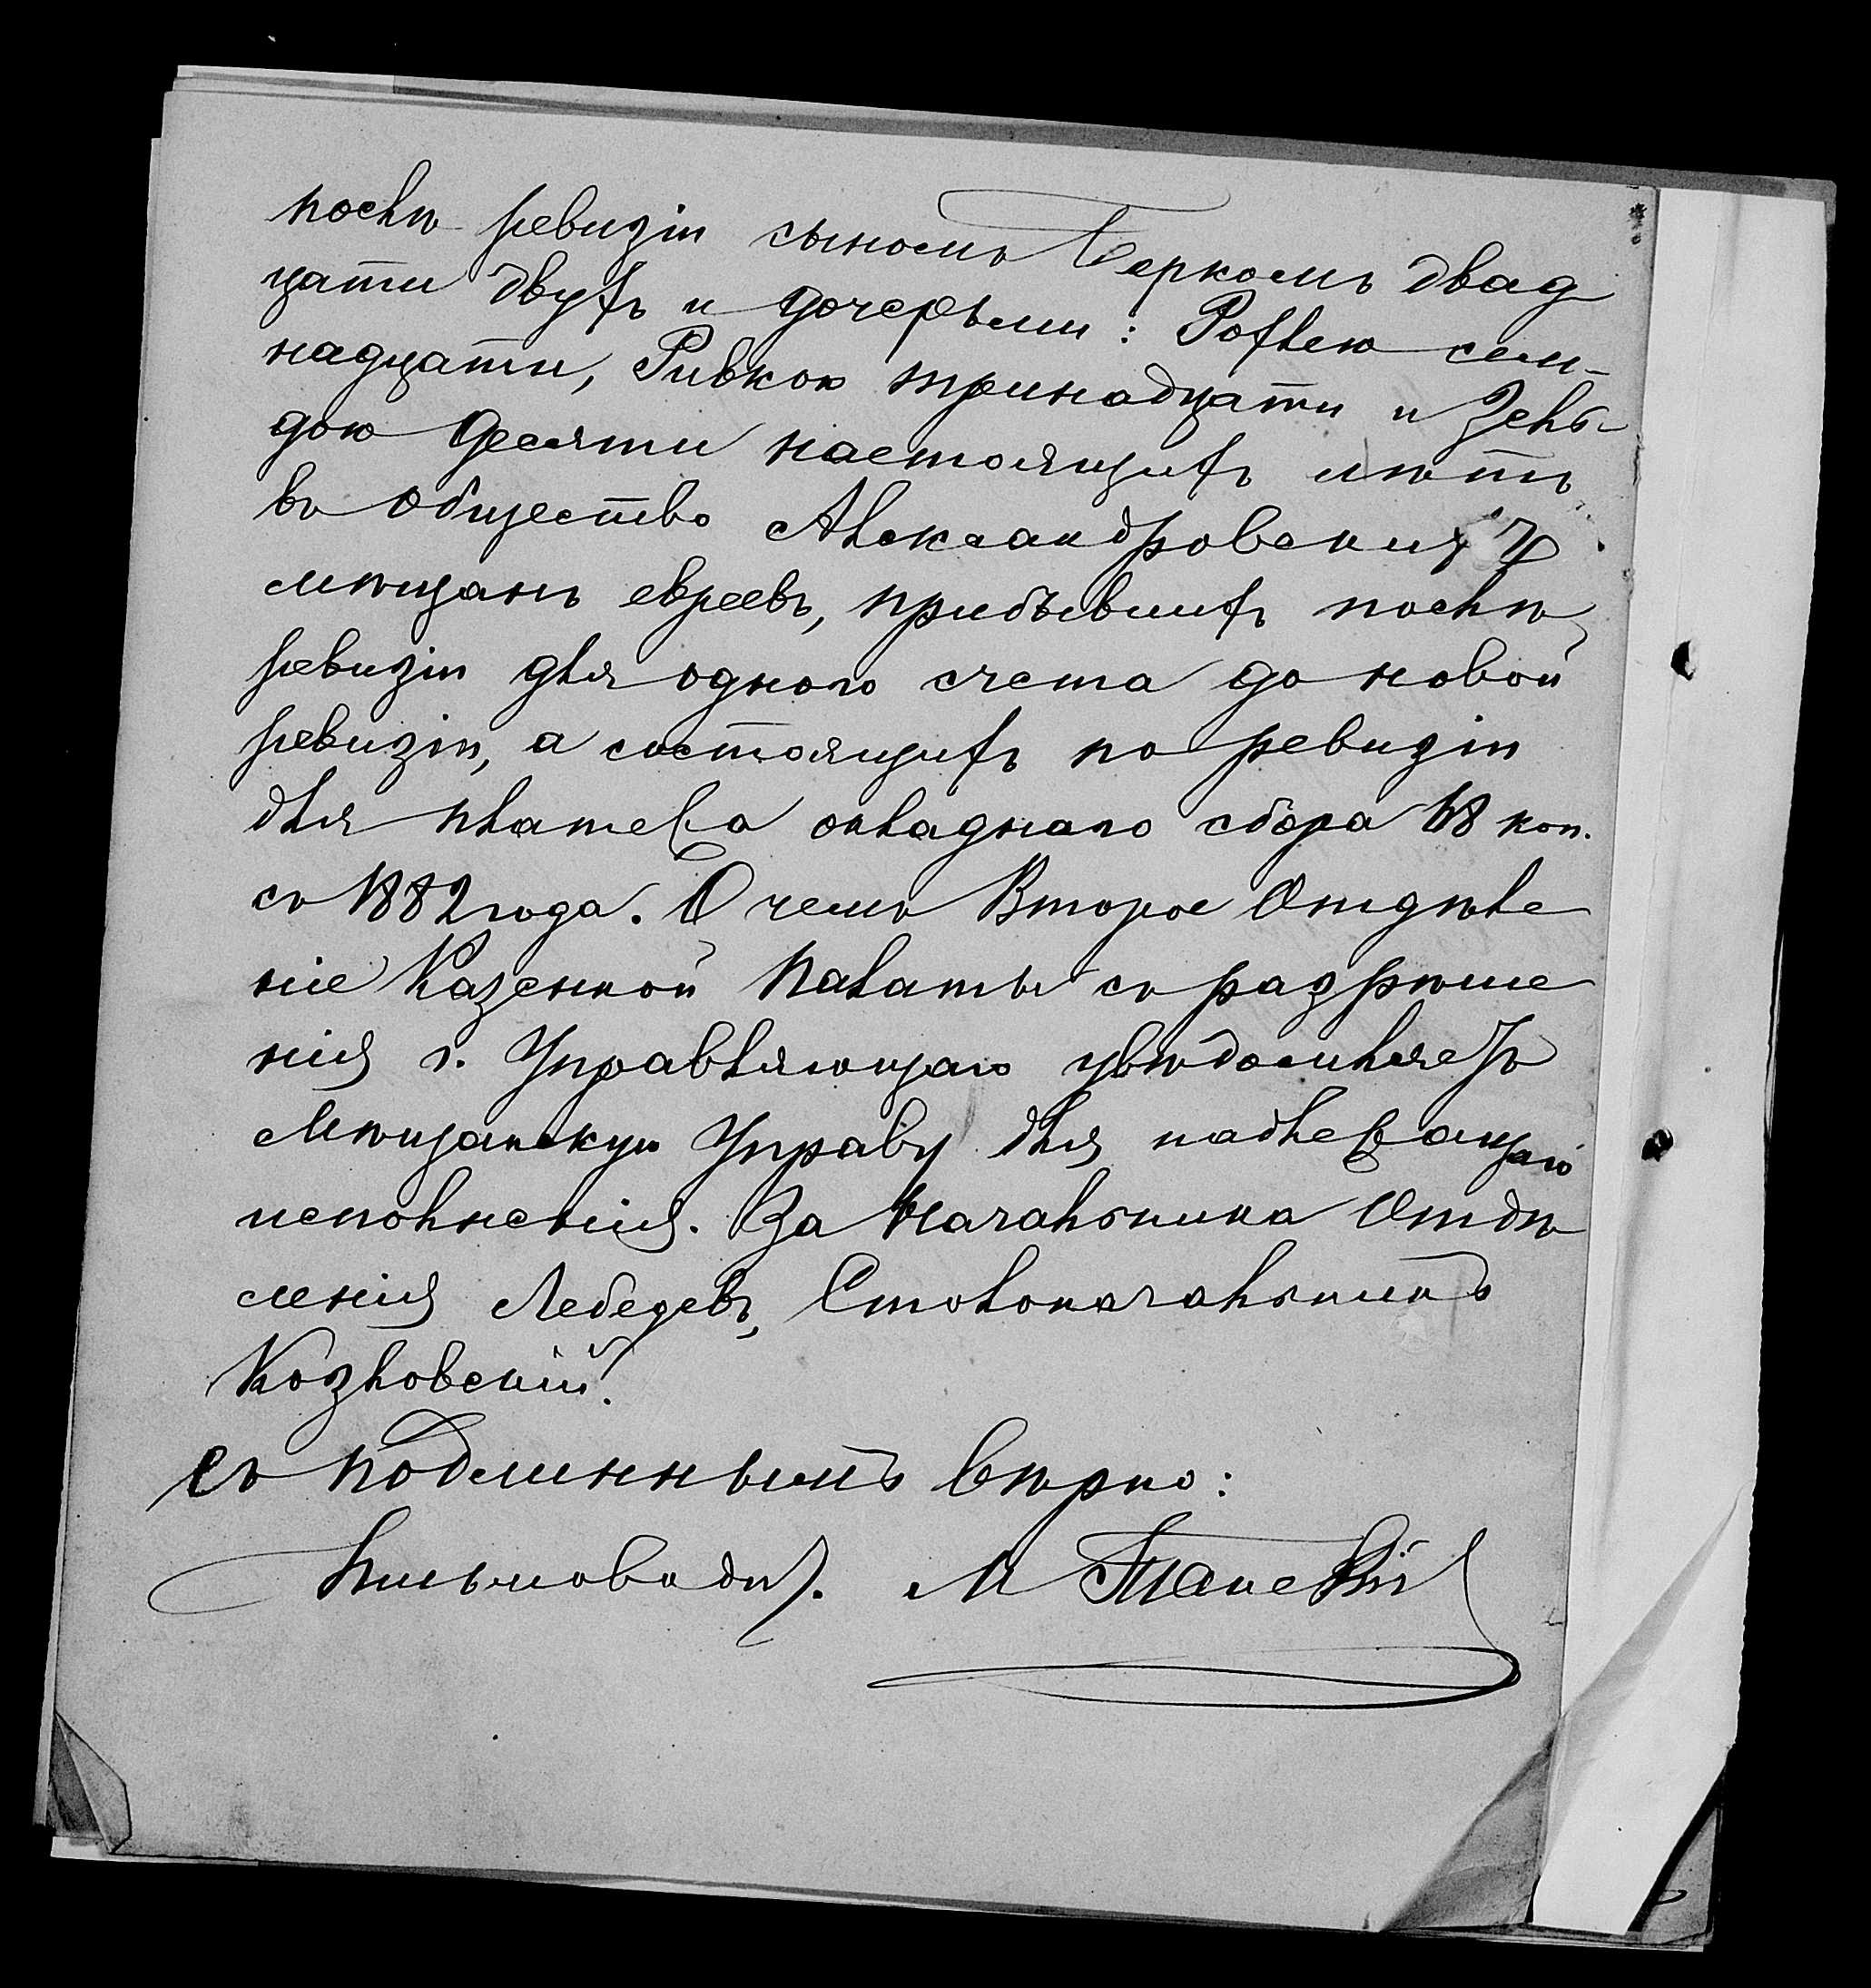 послѣ ревизіи сыномъ Беркомъ двад
цати двухъ и дочерьми: Рохлею сем-
надцати, Ривкою тринадцати и Зель-
дою десяти настоящихъ лѣтъ
въ общество Александровскихъ
мѣщанъ евреевъ, прибывшихъ послѣ
ревизіи для одного счета до новой
ревизіи, а состоящихъ по ревизіи
для платежа окладнаго сбора
съ 1882 года. О чемъ Второе Отдѣле
ніе Казенной Палаты съ разрѣше
нія г. Управляющаго увѣдомляетъ
Мѣщанскую Управу для надлежащаго
исполненія. За Начальника Отдѣ
ленія Лебедевъ, Столоначальникъ
Козловскій.
Съ подлиннымъ вѣрно:
Письмоводит. М